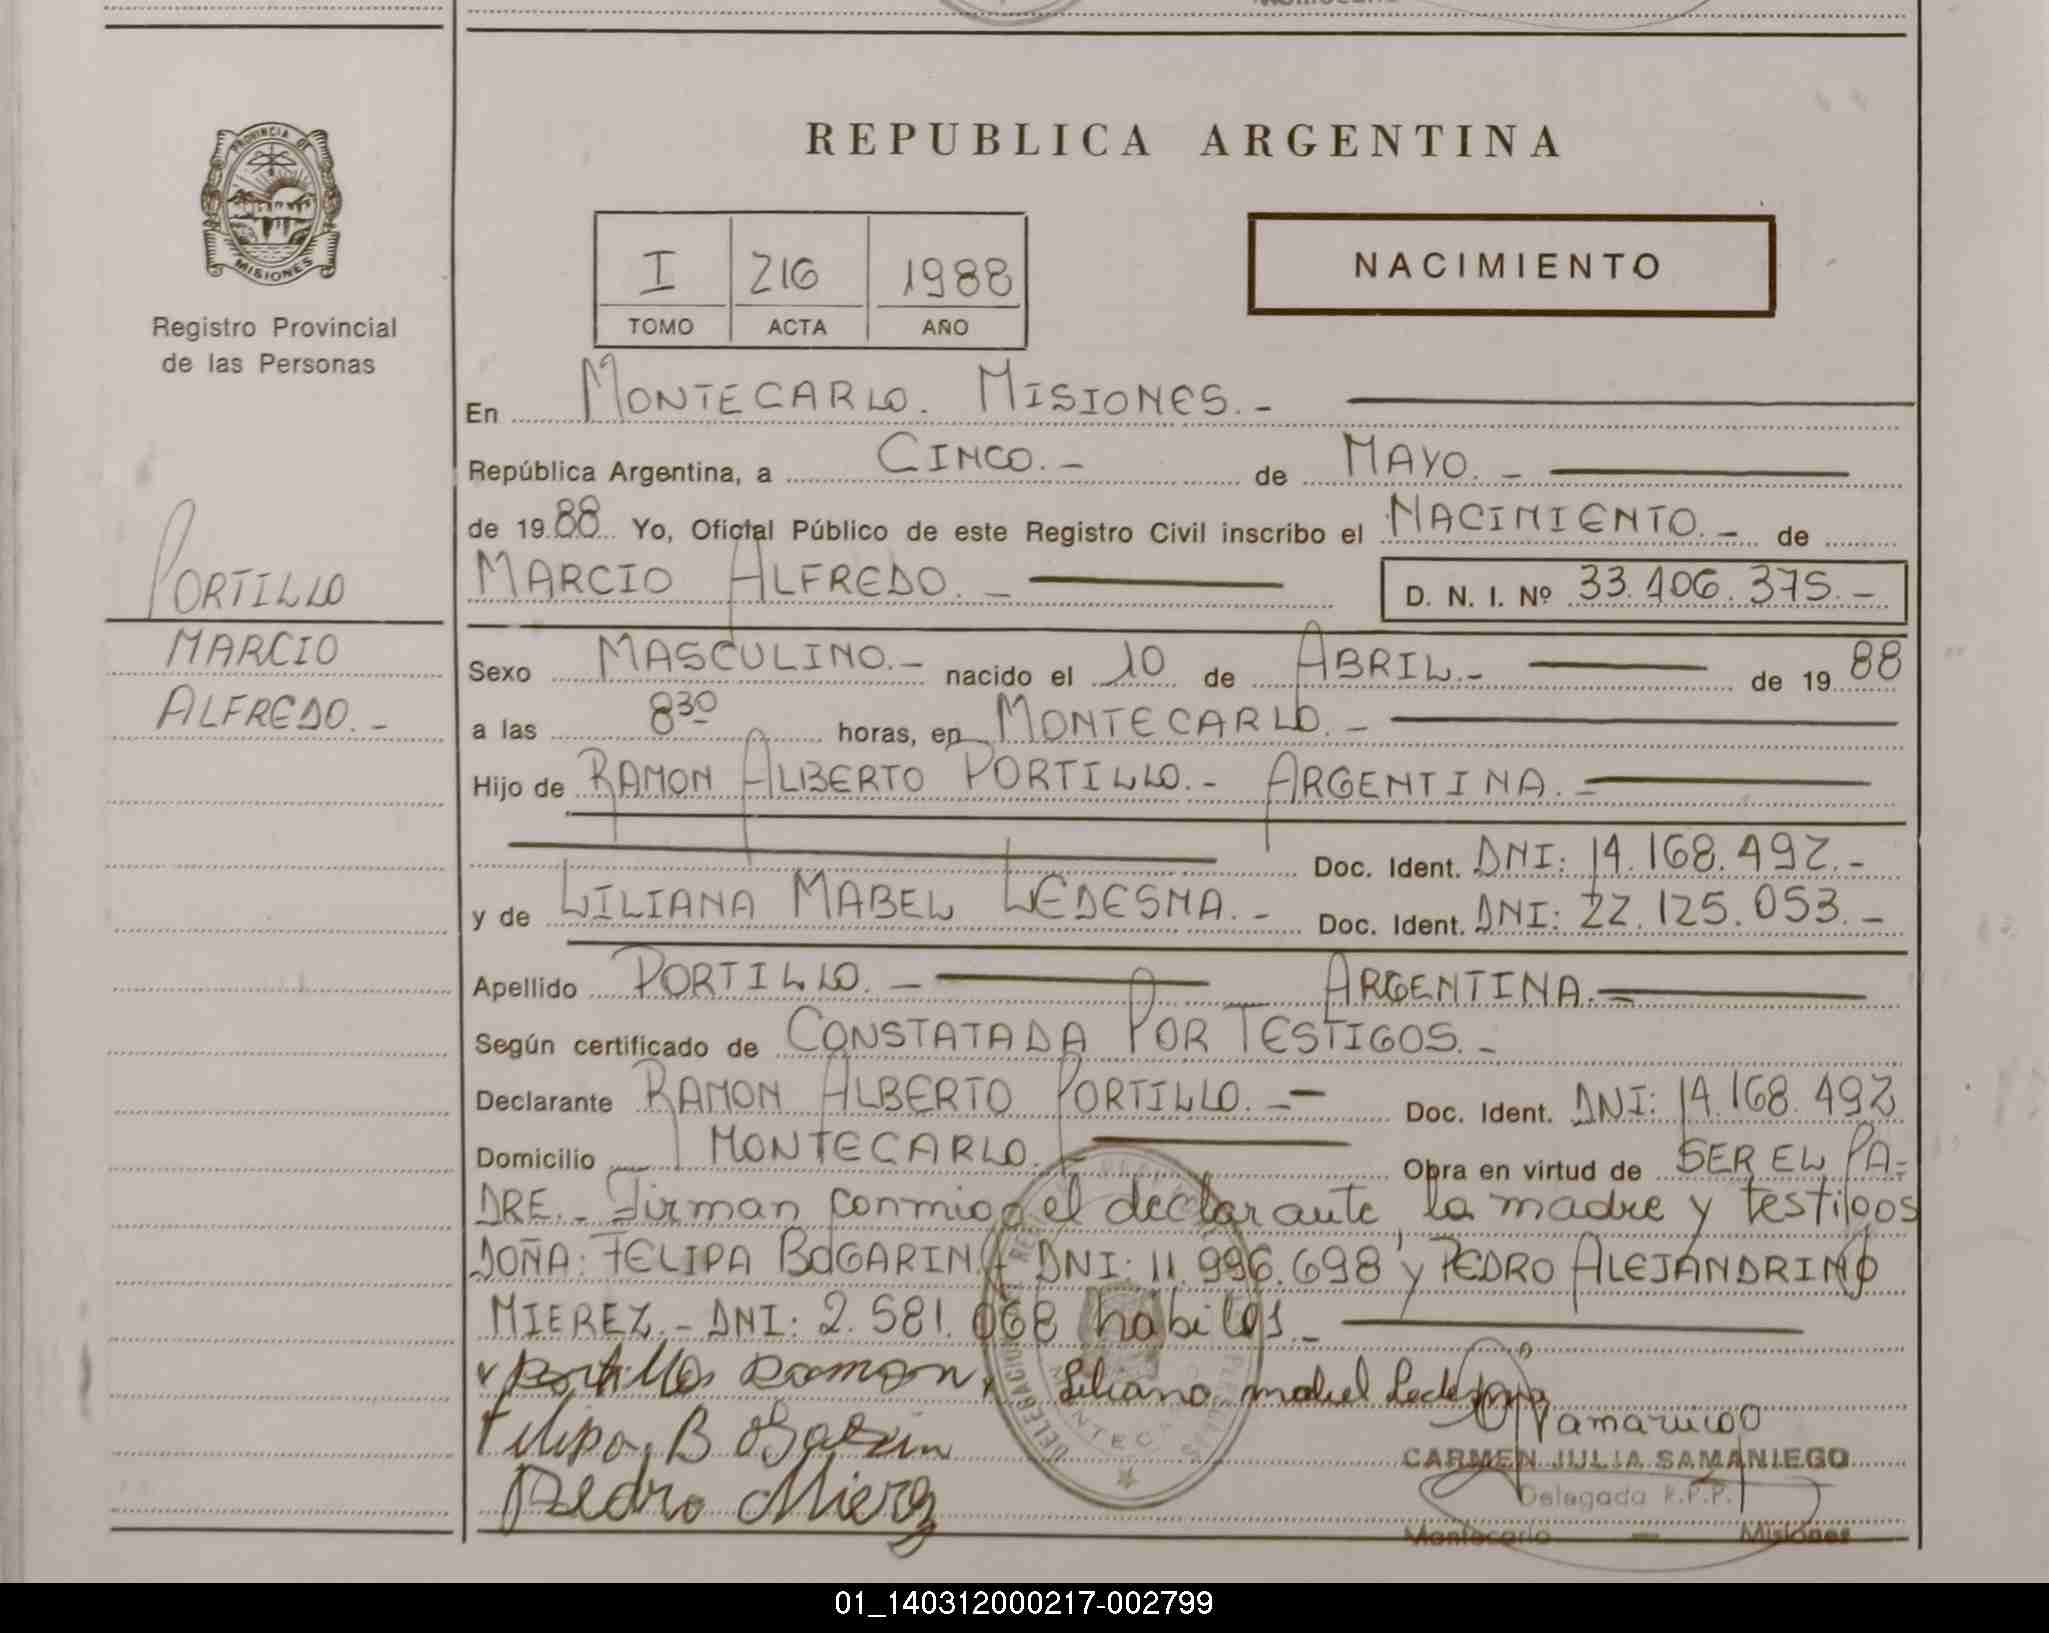 PROVINCIA DE
MISIONES
Registro Provincial
de las Personas
PORTILLO
MARCIO
ALFREDO. -
REPUBLICA ARGENTINA
I 216 1988
TOMO ACTA AÑO
NACIMIENTO
En MONTECARLO. MISIONES. -
República Argentina, a CINCO. - de MAYO. -
de 1988 Yo, Oficial Público de este Registro Civil inscribo el NACIMIENTO. - de
MARCIO ALFREDO. - D. N. I. Nº 33.106.375. -
Sexo MASCULINO. - nacido el 10 de ABRIL. - de 1988
a las 8 30 horas, en MONTECARLO. -
Hijo de RAMON ALBERTO PORTILLO. - ARGENTINA. -
Doc. Ident. DNI: 14.168.492. -
y de LILIANA MABEL LEDESMA. - Doc. Ident. DNI: 22.125.053. -
Apellido PORTILLO. - ARGENTINA. -
Según certificado de CONSTATADA POR TESTIGOS. -
Declarante RAMON ALBERTO PORTILLO. - Doc. Ident. DNI: 14.168.492
Domicilio MONTECARLO. - Obra en virtud de SER EL PA=
DRE. - Firman conmigo el declarante, la madre y testigos
DOÑA: FELIPA BOGARIN. - DNI: 11.996.698 y PEDRO ALEJANDRINO
MIEREZ. - DNI: 2.581.068 habiles. -
Portillo Ramon, Liliana mabel Ledesma
Felipa, B
Pedro Mierez
CARMEN JULIA SAMANIEGO
Delegada R.P.P.
Montecarlo - Misiones
01_140312000217-002799